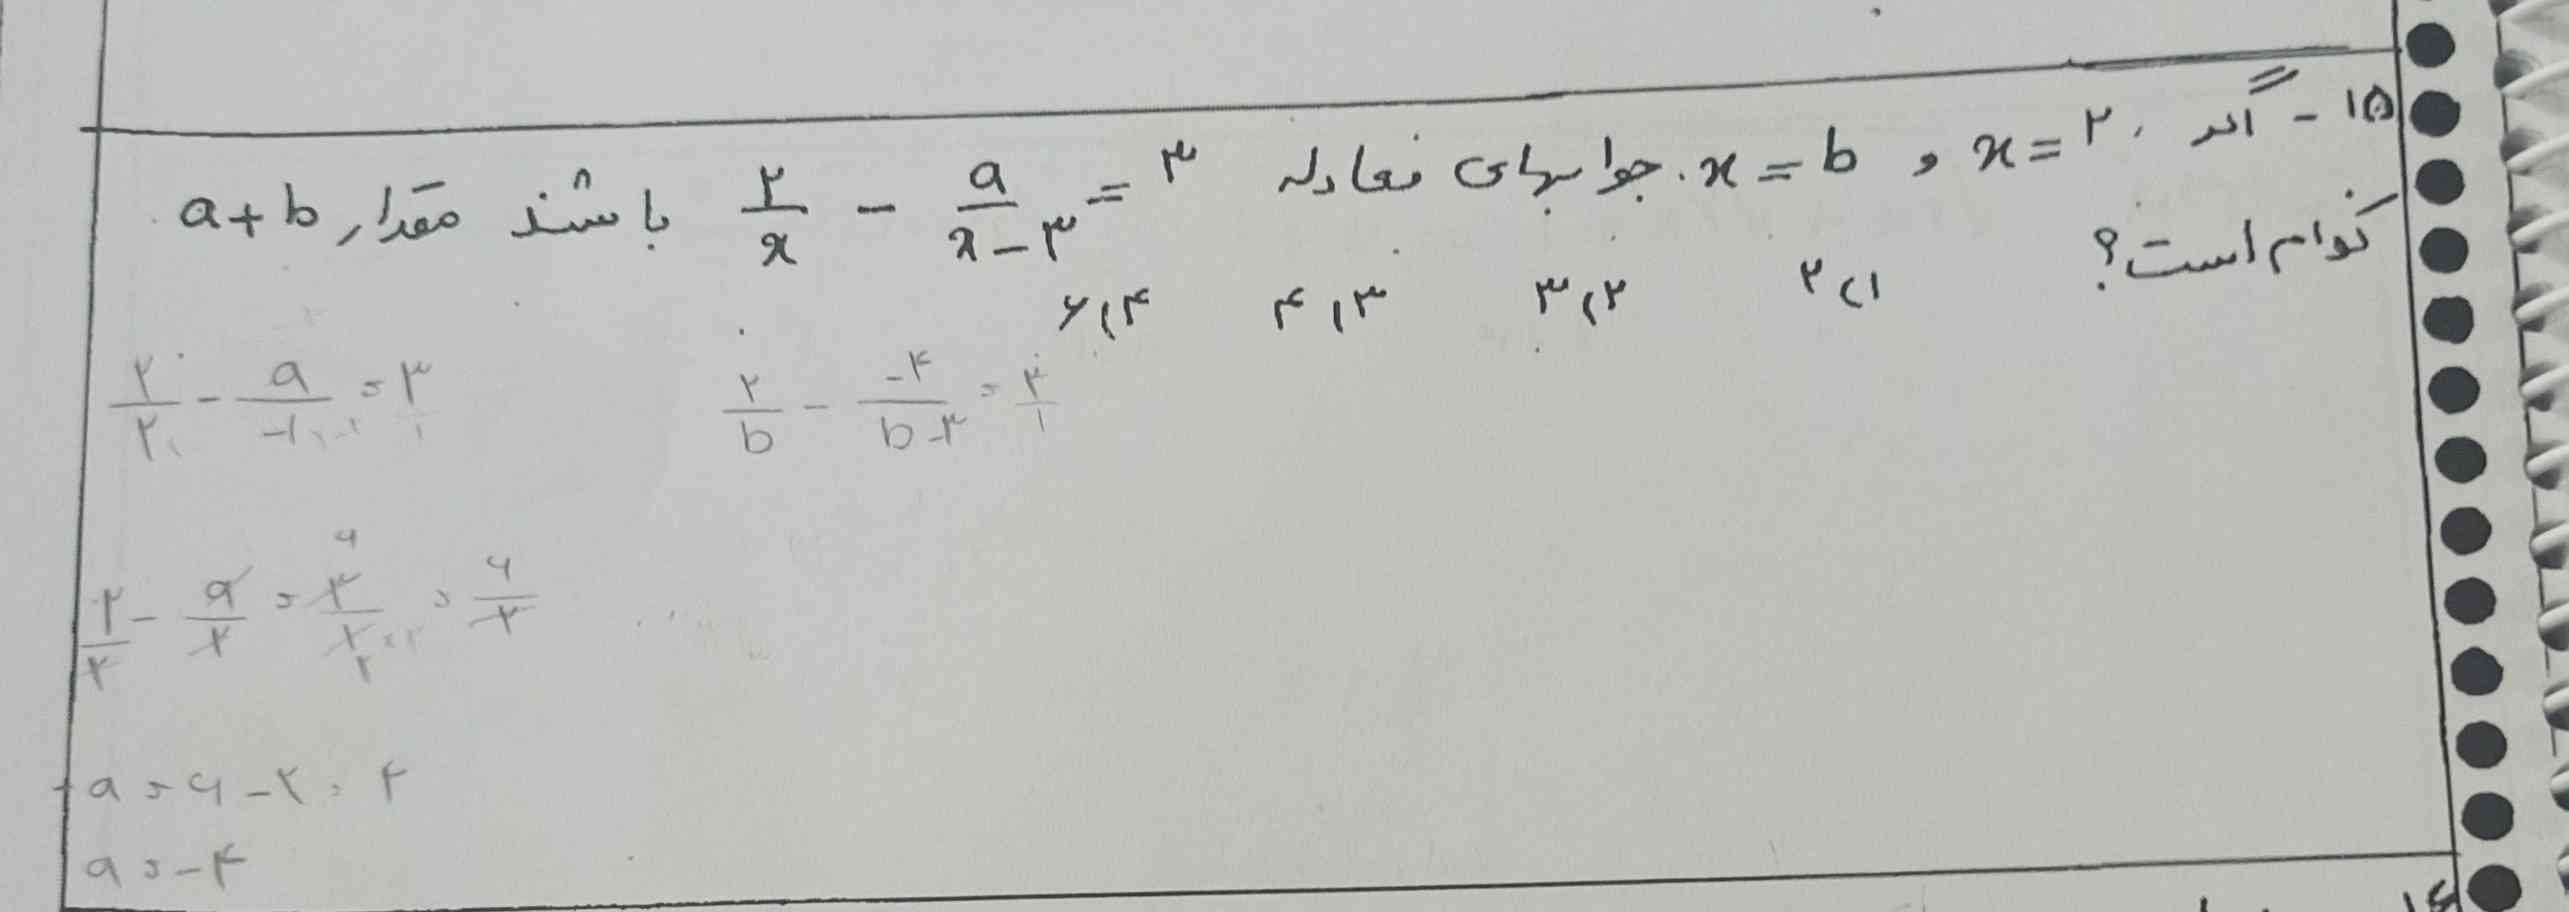 ۱۵ - اگر x = ۲ و x = b جوابهای معادله ۲/x - a/(x-۳) = ۳ باشند مقدار a+b
کدام است؟ ۱) ۲ ۲) ۳ ۳) ۴ ۴) ۶
۲/۲ - a/-۱ = ۳/۱ ۲/b - -۴/(b-۳) = ۳/۱
۲/۲ - a/۲ = ۳/۱ = ۶/۲
-a = ۶ - ۲ = ۴
a = -۴